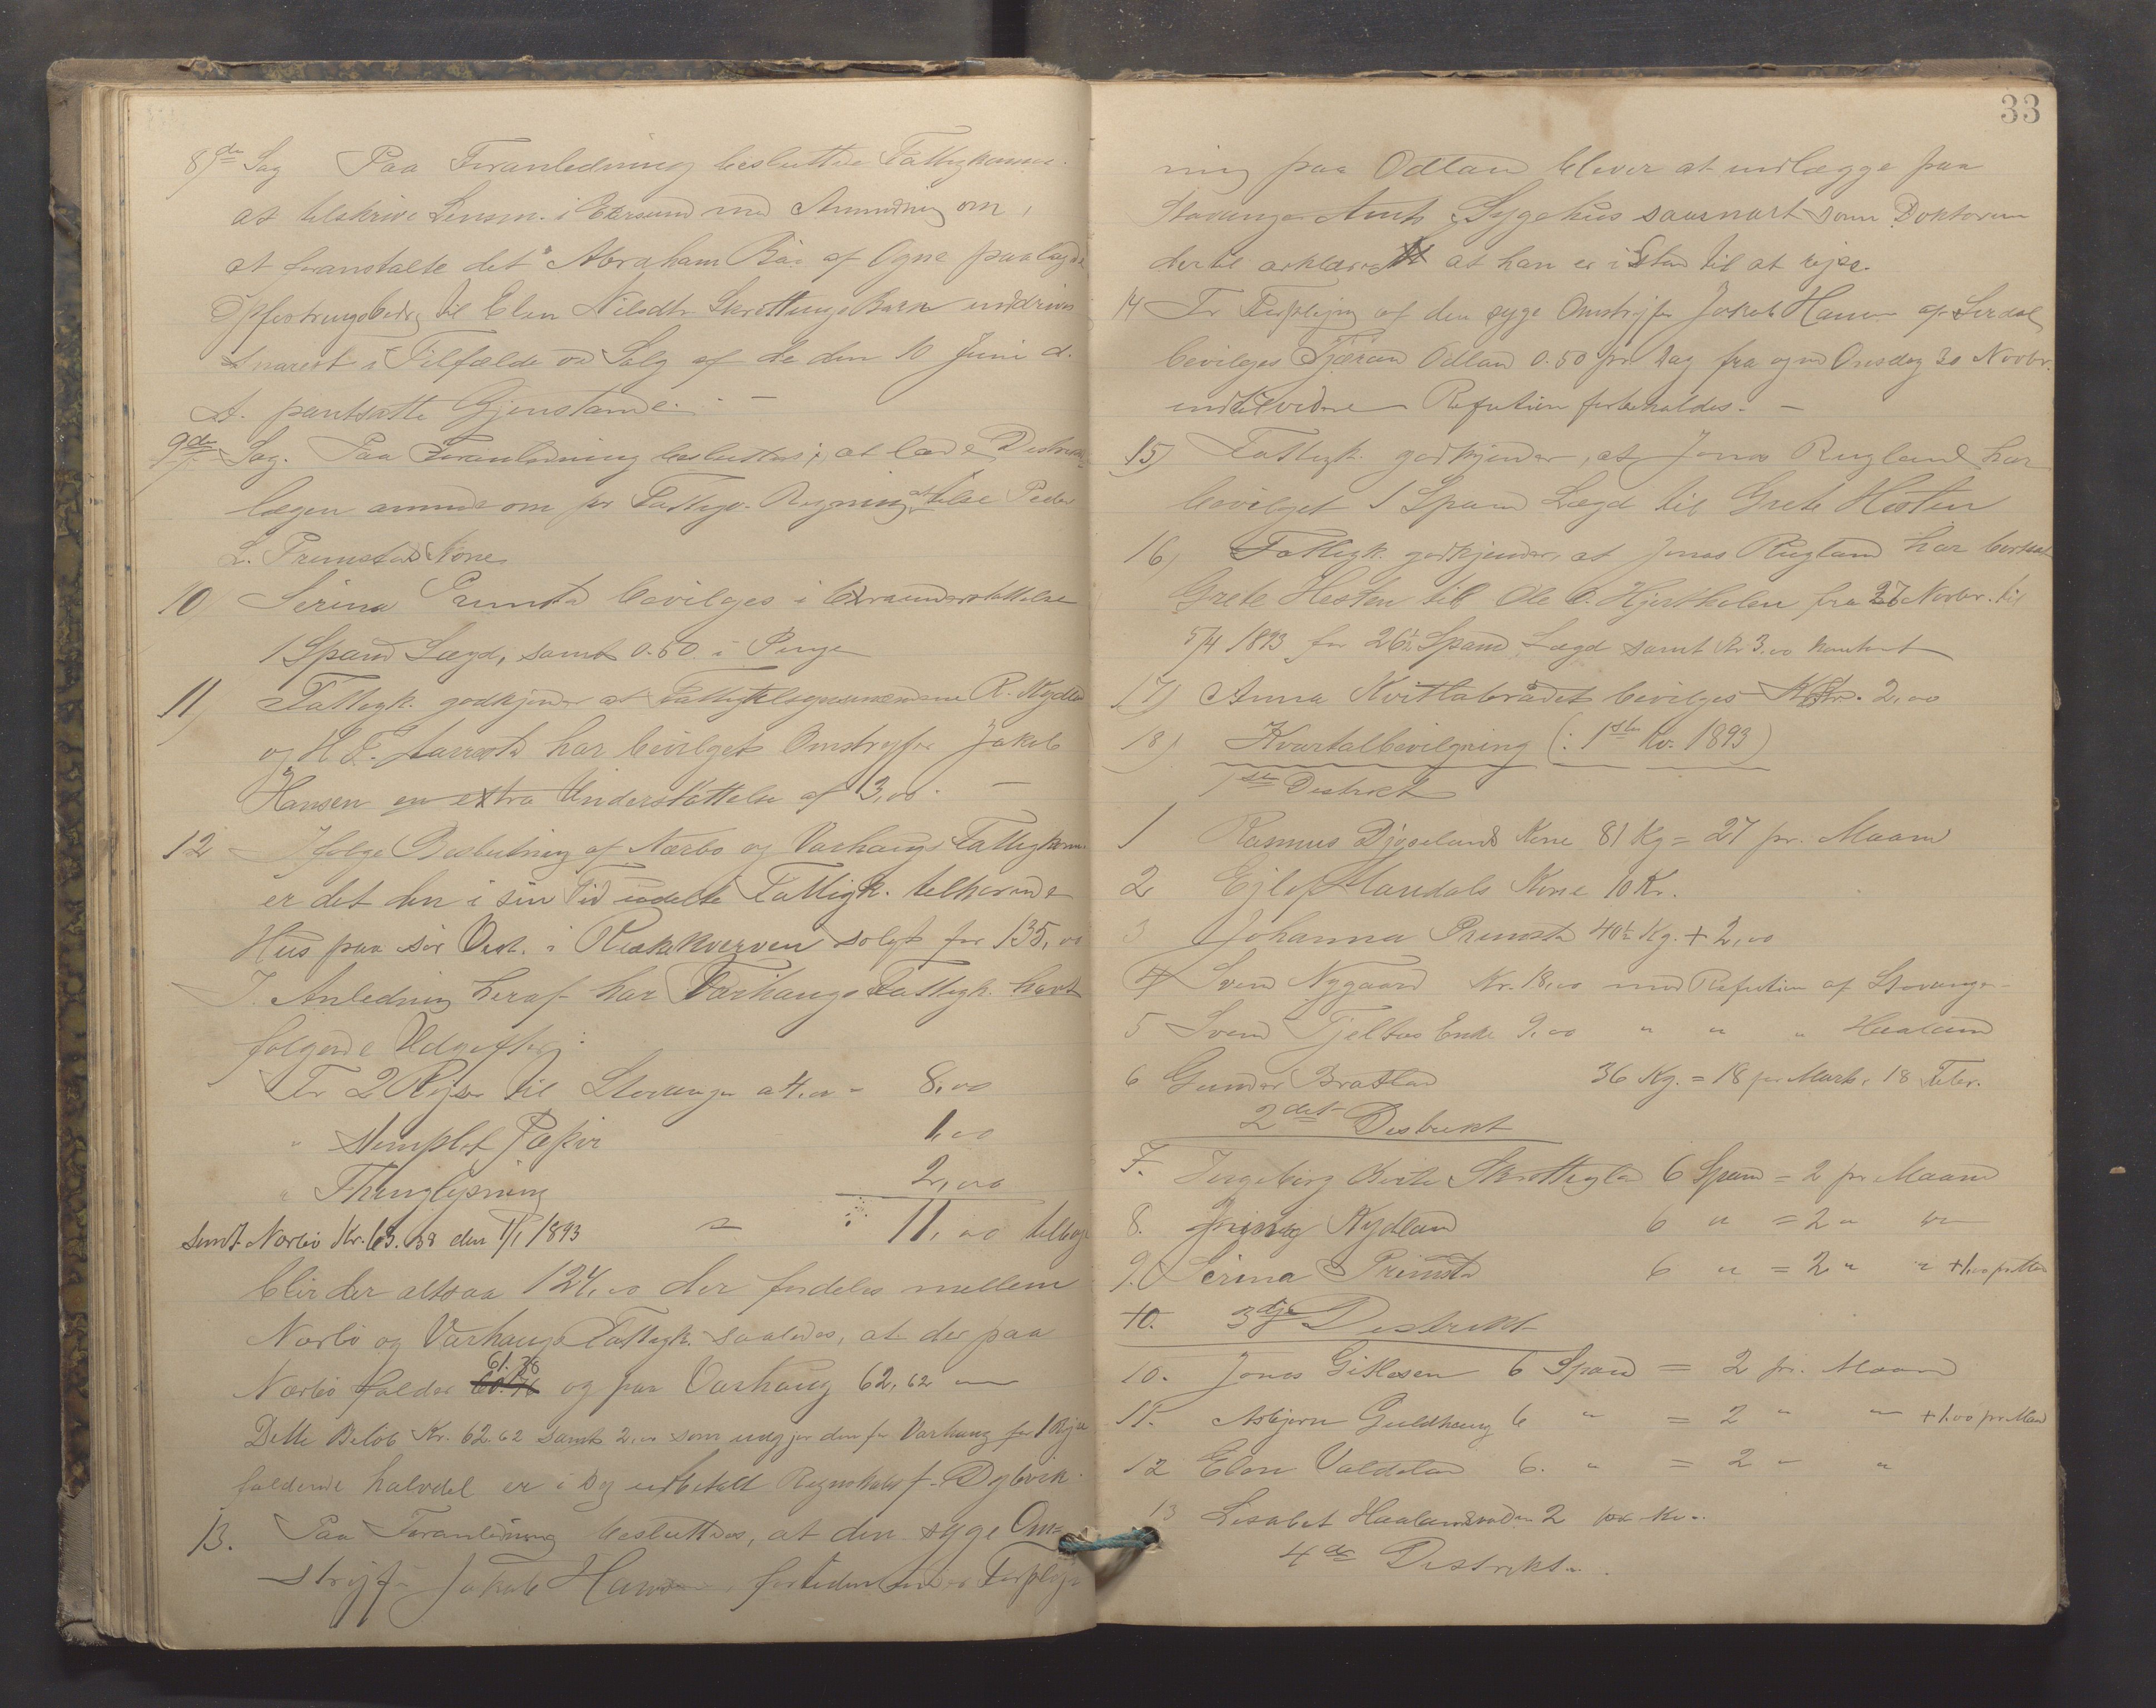 8de Sag Paa Foranledning besluttede Fattigkomm.
at tilskrive Lensm. i Ekersund med Anmodning om,
at foranstalte det Abraham Bø af Ogne paalagde
Opfostringsbidrag til Elen Nilsdtr. Skrettings Barn inddrives
snarest i Tilfælde ved Salg af de den 10 Juni d.
A. pantsatte Gjenstande. —
9de Sag. Paa Foranledning besluttes, at lade Distrikts
lægen anmode om for Fattigv. Regning at tilse Peder
L. Prumstads Kone
10 Serina Prumsta bevilges i Extraunderstøttelse
1 Spand Lægd, samt 0.50 i Penge
11) Fattigk. godkjender at Fattigtilsynsmændene R. Nydla
og H. T. Aarresta har bevilget Omstreyfer Jakob
Hansen en extra Understøttelse af 3,00. —
12 Ifølge Beslutning af Nærbo og Varhaugs Fattigkom.
er det den i sin Tid udelte Fattigk. tilhørende
Hus paa sør Vest. i Kverven solgt for 135,00
I Anledning heraf har Varhaugs Fattigk. havt
følgende Udgifter:
For 2 Rejser til Stavanger a 4,00 - 8,00
" stemplet Papir 1,00
" Thinglysning 2,00
Sendt Nærbø Kr. 63.38 den 7/1 1893 11,00 tilbage
blir der altsaa 124,00 der fordeles mellem
Nærbø og Varhaugs Fattigk. saaledes, at der paa
61.38
Nærbø falder og paa Varhaug 62,62
Dette Beløb Kr. 62.62 samt 2,00 som udgjør den for Varhaug for 1 Rejse
faldende halvdel er i Dag udbetalt Regnskabsf. Dybvik.
13. Paa Foranledning besluttes, at den syge Om=
strejfer Jakob Hansen, fortiden under Forplej
33
ning paa Odland bliver at indlægge paa
Stavanger Amts Sygehus saasnart som Doktoren
dertil erklærer at han er i Stand til at rejse.
14 For Forplejning af den syge Omstrejfer Jakob Hansen af Sirdal
bevilges Tjæran Odland 0.50 pr. Dag fra og med Onsdag 30 Novbr.
indtil videre Refusion forbeholdes. —
15) Fattigk. godkjender, at Jonas Rugland har
bevilget 1 Spand Lægd til Grete Hesten
16) Fattigk. godkjender, at Jonas Rugland har bortsat
Grete Hesten til Ole O. Hjertholen fra 27 Novbr. til
5/4 1893 for 26½ Spand Lægd samt Kr 3,00 kontant
17) Anna Kvitlabrådet bevilges Kr. 2,00
18) Kvartalbevilgning (: 1ste Kv. 1893)
1ste Distrikt
1 Rasmus Djøselands Kone 81 Kg = 27 pr. Maaned
2 Ejlef Maudals Kone 10 Kr.
3 Johanna Prumsta 40½ Kg. + 2,00
4 Svend Nygaard Kr. 18,00 med Refusion af Stavanger
5 Svend Fjelbos Enke 9,00 " " " Haaland
6 Gunder Bratland 36 Kg. = 18 pr Marts, 18 Febr.
2det Distrikt
7. Ingeborg Berte Skrettingla 6 Spand = 2 pr Maaned
8. Nydland 6 " = 2 " "
9. Serina Prumsta 6 " = 2 " " + 1.00 pr Maa
10. 3dje Distrikt
10. Jonas Gislesen 6 Spand = 2 pr. Maaned
11. Asbjørn Guldhaug 6 " = 2 " " + 1.00 pr Maa
12 Elen Valdeland 6. " = 2 " "
13 Lisabet 2 Kr.
4de Distrikt